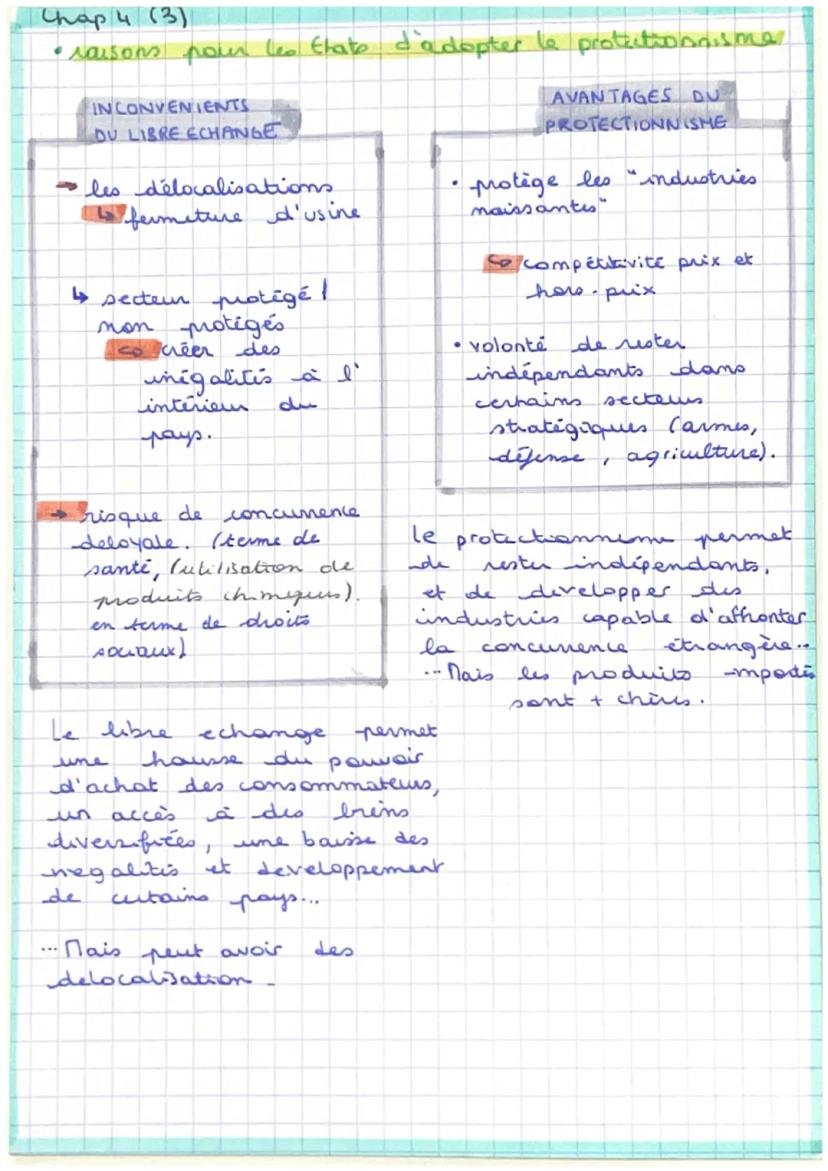 Chap 4 (3)
• raisons pour les Etats d'adopter le protectionnisme
INCONVENIENTS
DU LIBRE ECHANGE
→ les délocalisations
↳ fermeture d'usine
↳ secteur protégé /
non protégés
↪ créer des
inégalités à l'
intérieur du
pays.
→ risque de concurrence
deloyale. (terme de
santé, (utilisation de
produits chimiques).
en terme de droits
sociaux)
Le libre echange permet
une hausse du pouvoir
d'achat des consommateurs,
un accès à des biens
diversifiées, une baisse des
negalités et developpement
de certains pays...
... Mais peut avoir des
delocalisation.
AVANTAGES DU
PROTECTIONNISME
• protège les "industries
naissantes"
↪ compétitivité prix et
hors-prix
• volonté de rester
indépendants dans
certains secteurs
stratégiques (armes,
défense, agriculture).
le protectionnisme permet
de rester indépendants,
et de developper des
industries capable d'affronter
la concurrence étrangère...
... Mais les produits importés
sont + chères.